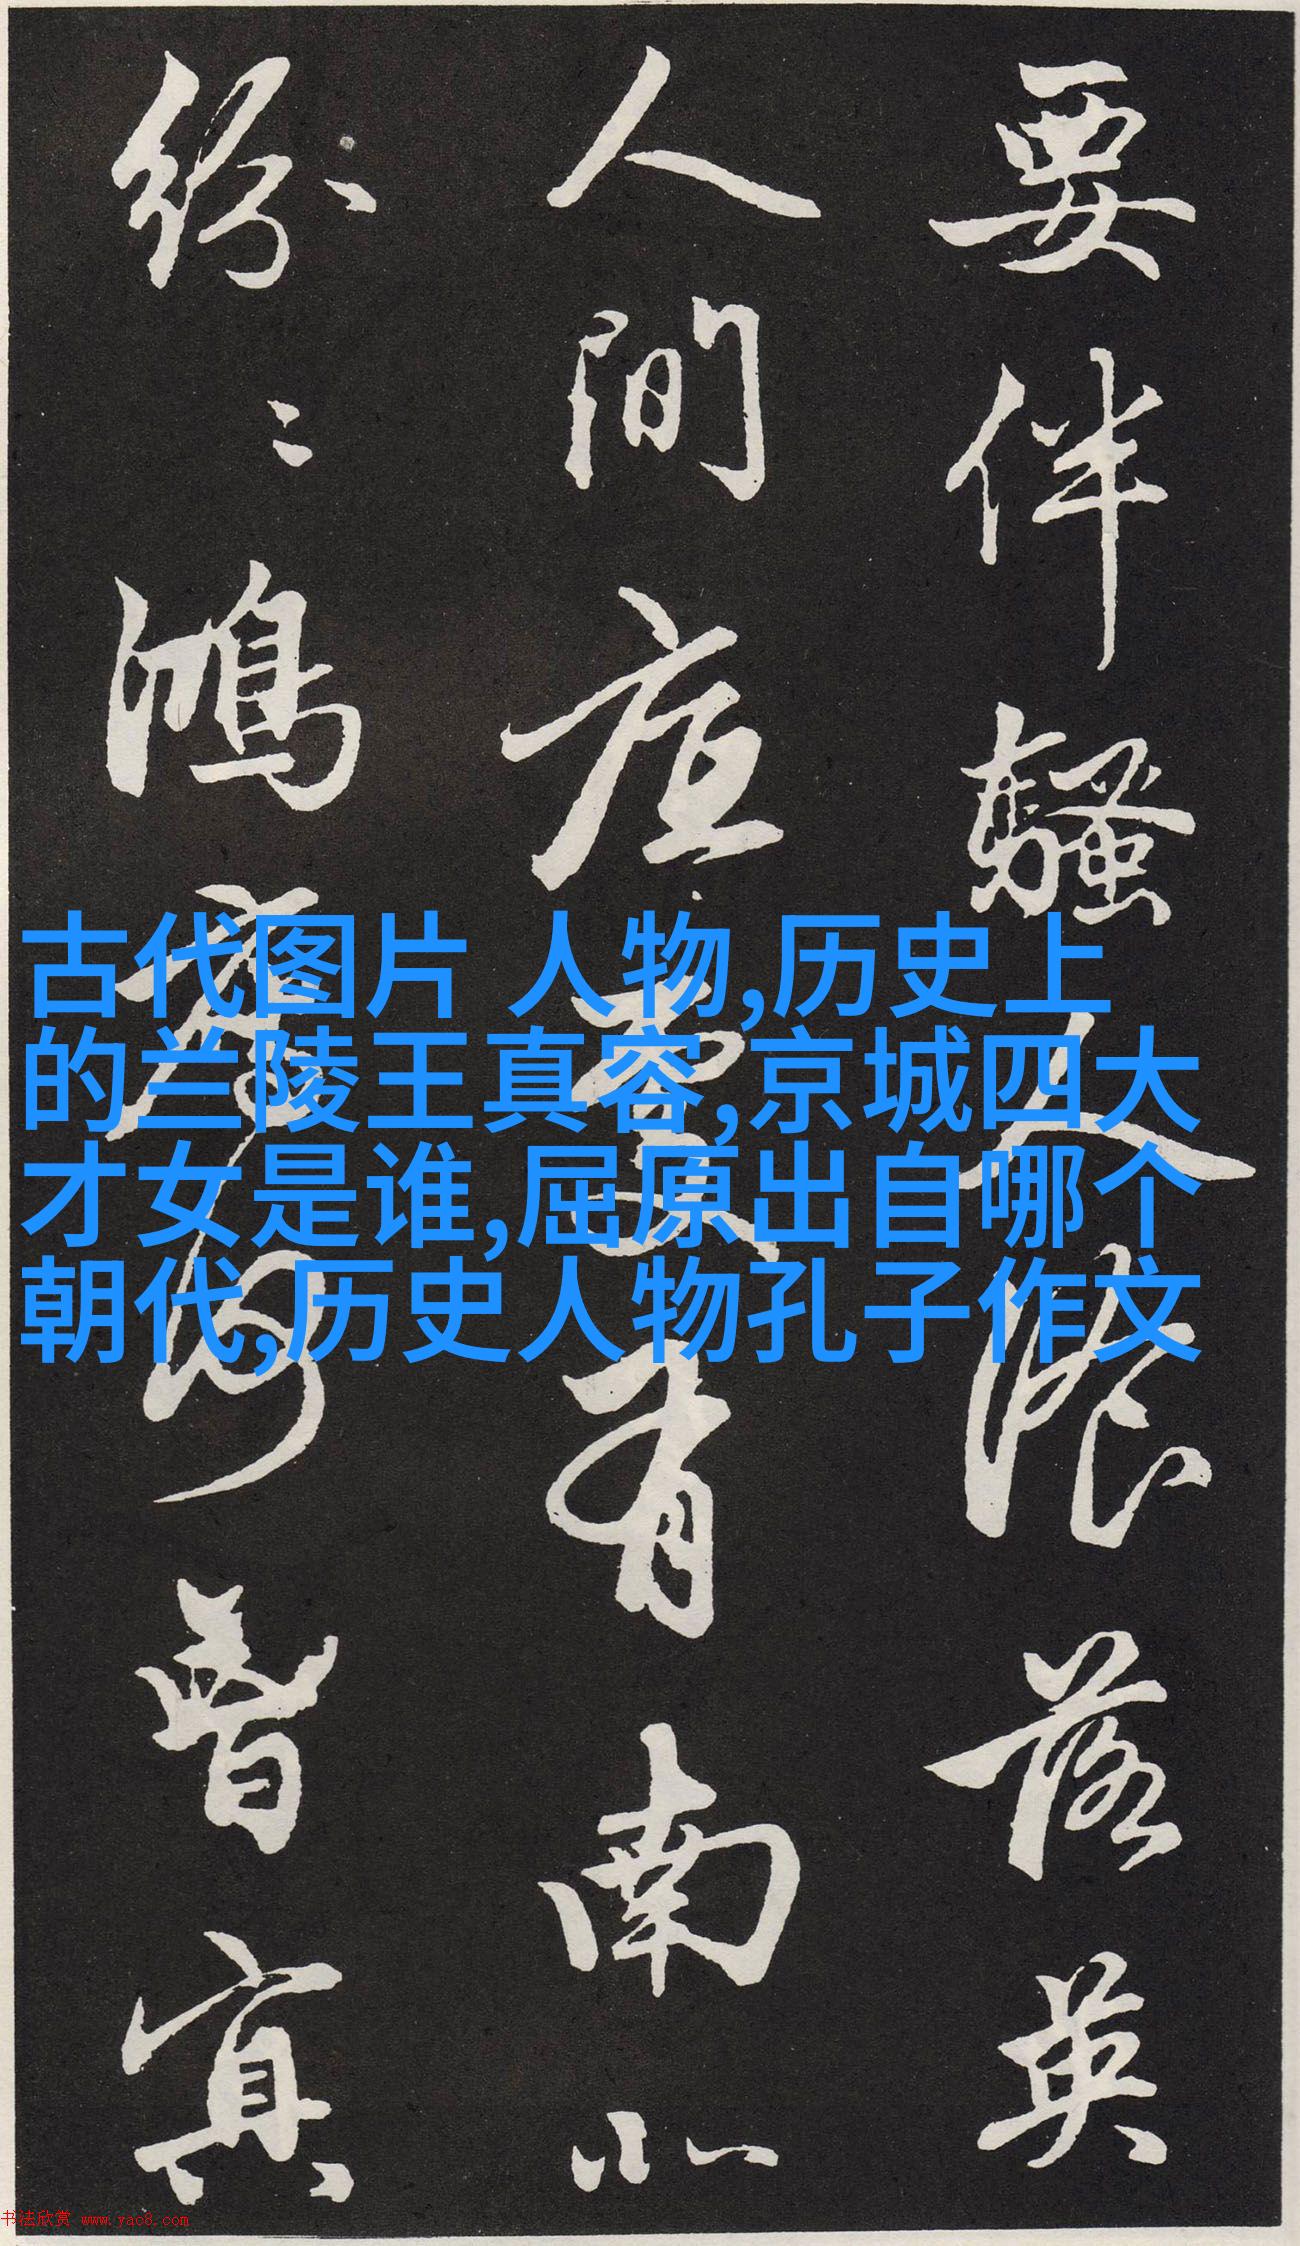 要伴騷人湌落英
人間底處有南北
紛〻鴻雁何曾冥
古代图片 人物,历史上
的兰陵王真容,京城四大
才女是谁,屈原出自哪个
朝代,历史人物孔子作文
书法欣赏 www.yac8.com